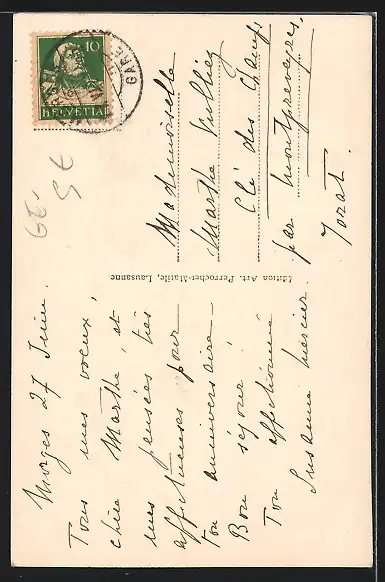 Morges 27 Juin.
Tous mes voeux,
chère Marthe, et
mes pensées très
affectueuses pour
ton anniversaire –
Bon séjour!
Ton affectionnée
Susanne Mercier.
Édition Art. Perrochet-Matile, Lausanne
Mademoiselle
Marthe
Clé des Champs
par Montpreveyres,
Jorat.
10
HELVETIA
GARE